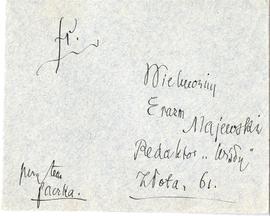 fr.
Wielmożny
Erazm
Majewski
Redaktor „Wisły"
Złota, 61.
przytem
paczka.